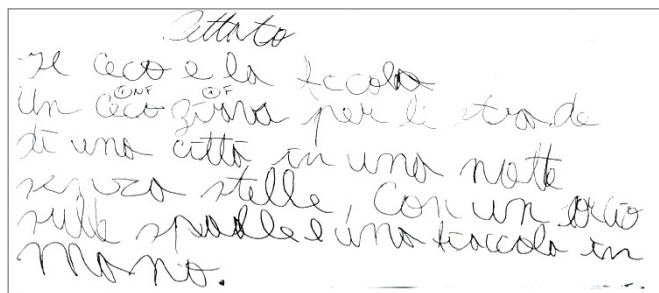 Dettato
Il ceco e la ficcola
①NF ①F
Un ceco zirava per le strade
di una citta in una notte
senza stelle, con un orcio
sulle spalle e una fiaccola in
mano.